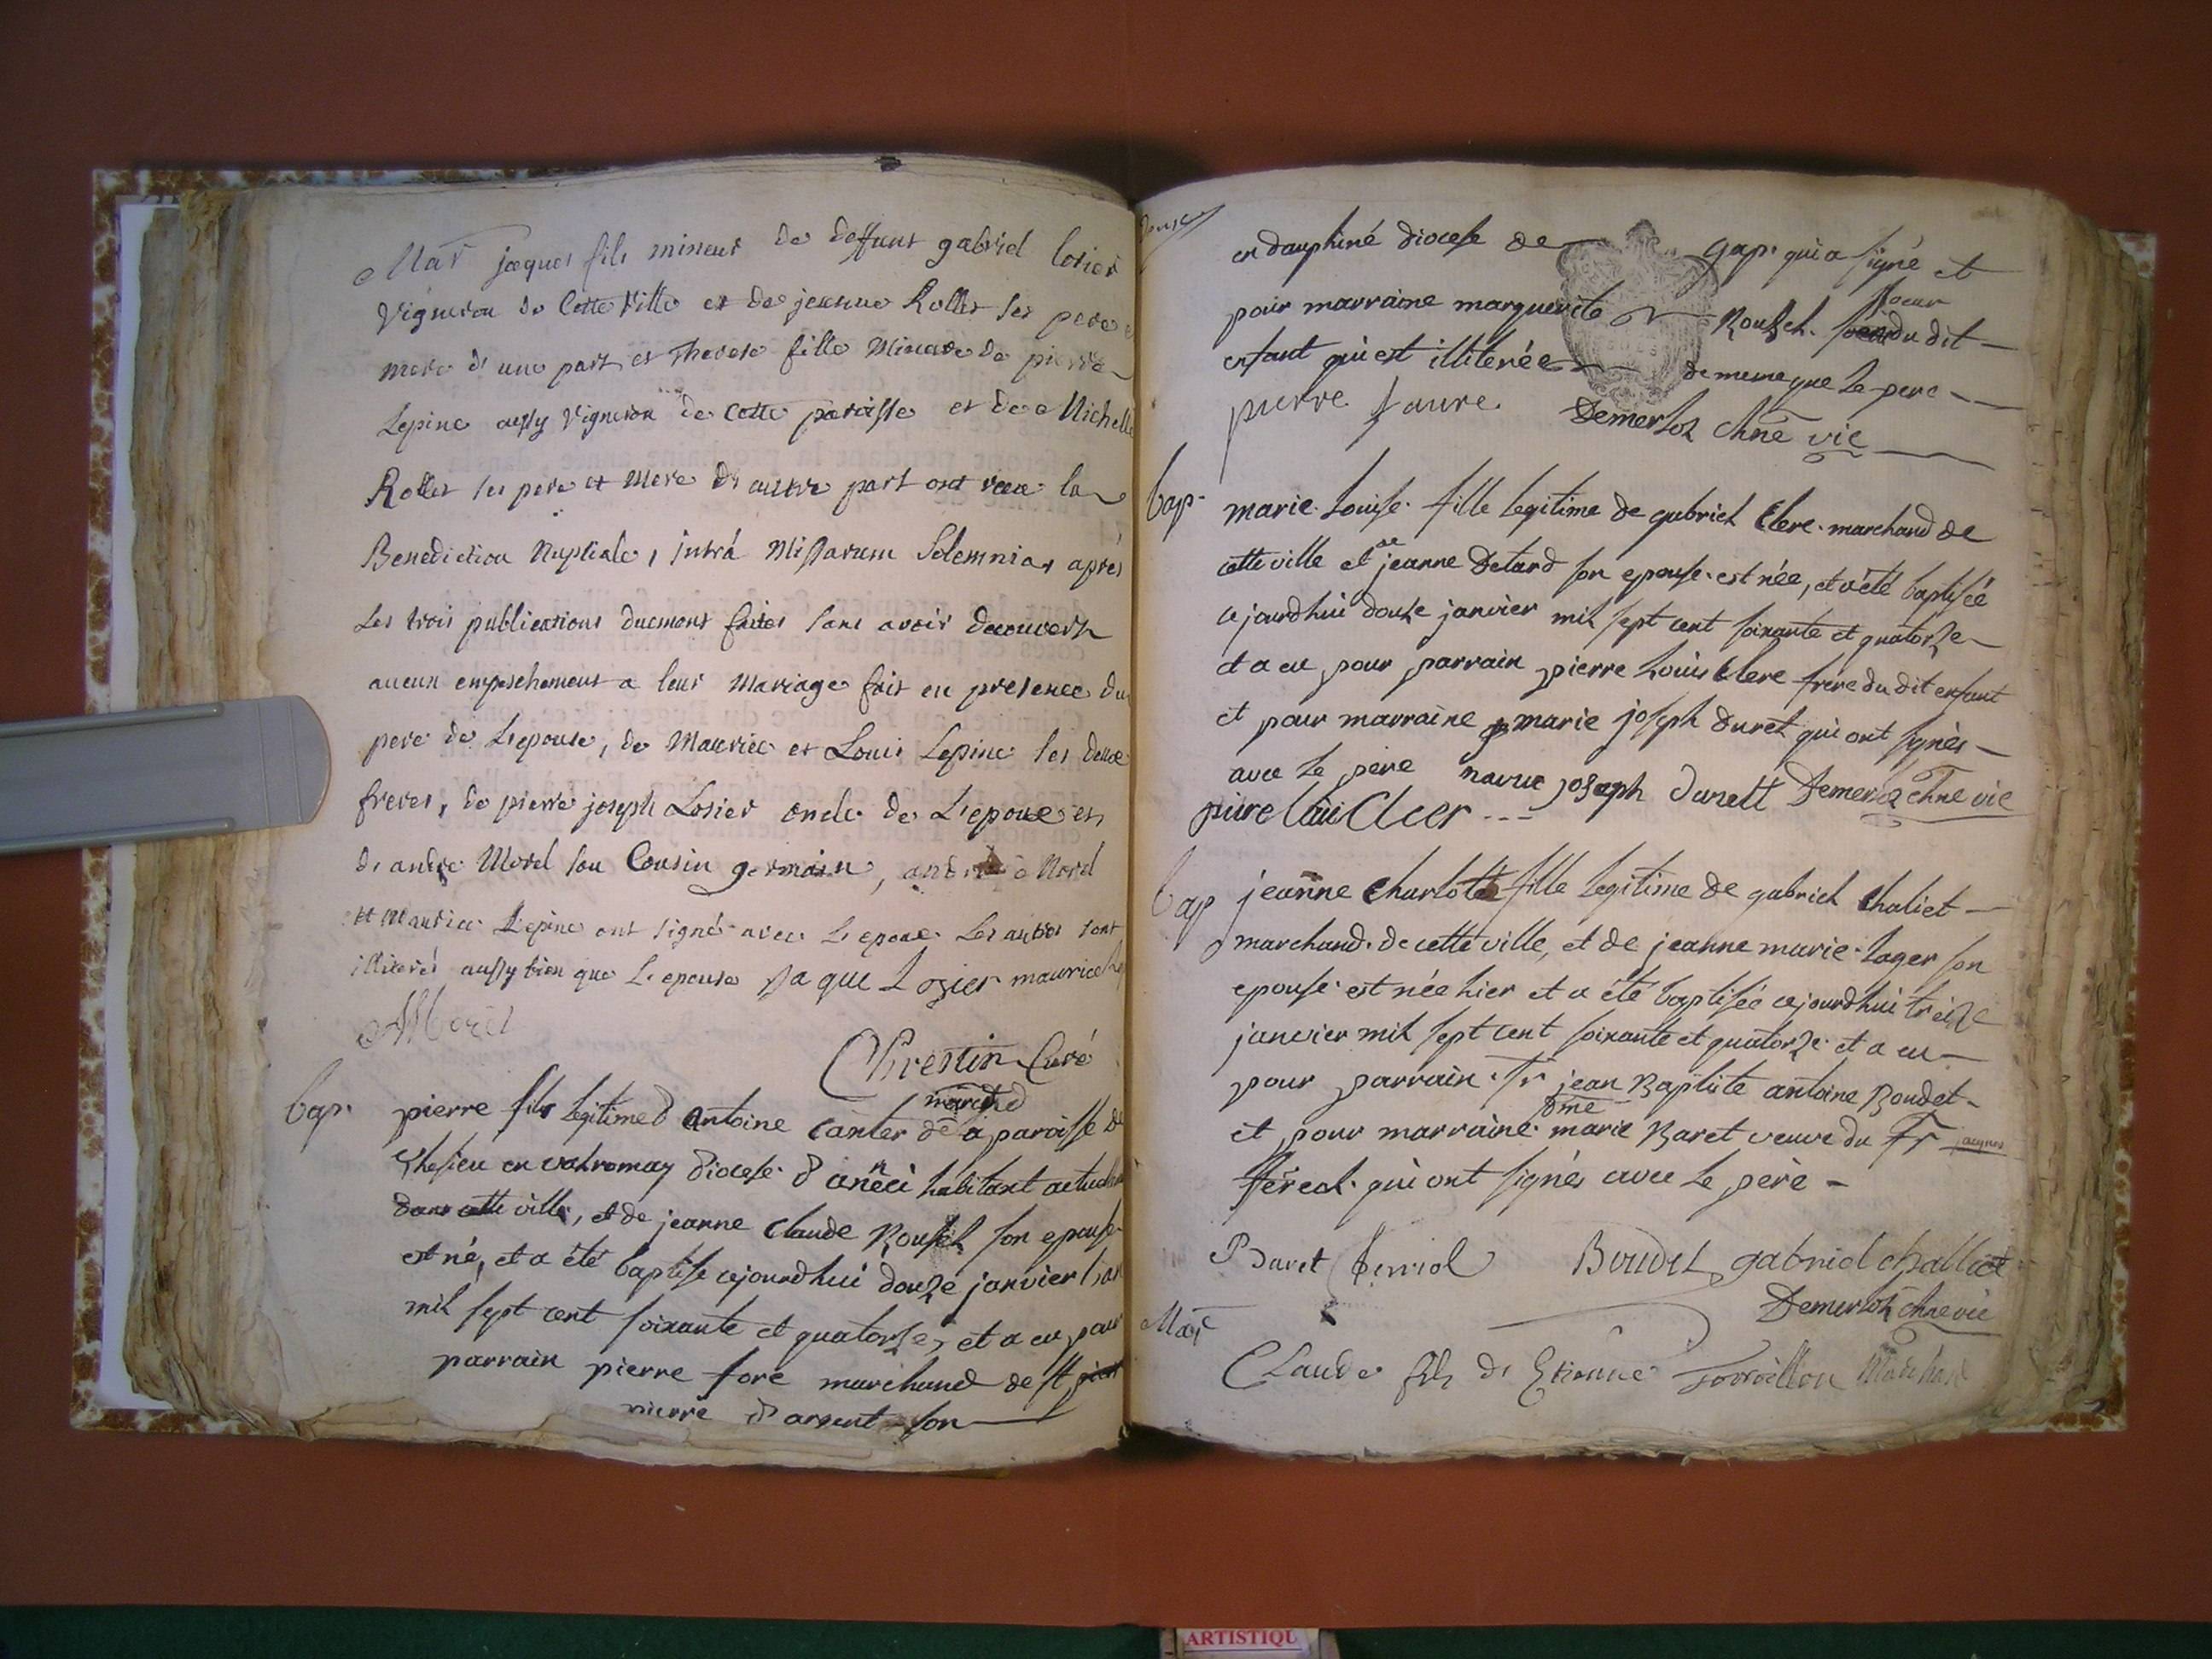 Mar jacques fils mineur de deffunt gabriel losier
Vigneron de Cette Ville et de jeanne Rollet ses pere
mere d'une part et Therese fille Mineure de pierre
Lepine aussy Vigneron de Cette paroisse et de Michelle
Rollet ses pere et Mere d'autre part ont recu la
Benediction Nuptiale, intrá Missarum Solemnia, aprés
Les trois publications duement faites sans avoir decouvert
aucun empeschement a leur Mariage fait en presence du
pere de L'epouse, de Maurice et Louis Lepine ses deux
freres, de pierre joseph Losier oncle de L'epoux et
d'andre Morel son Cousin germain, Morel
et Maurice Lepine ont signé avec L'epoux Les autres sont
illiterés aussy bien que L'epouse Jaque Lozier maurice
AMorel
Chrestin Curé
bap. pierre fils legitime d'Antoine Canter marchd de la paroisse de
en valromay diocese d'anneci habitant
dans cette ville, et de jeanne Claude Roussel son epouse
est né, et a été baptisé cejourd'hui douze janvier
mil sept cent soixante et quatorze, et a eu pour
parrain pierre fore marchand de st
pierre d'argent son
en dauphiné diocese de Gap. qui a signé et
pour marraine marguerite Roussel. soeur du dit
enfant qui est illiterée de meme que le pere
pierre faure. Demerloz Chne vic
bap. marie Louise fille legitime de gabriel Clerc marchand de
cette ville et de jeanne Detard son epouse est née, et a été baptisée
cejourdhui douze janvier mil sept cent soixante et quatorze
et a eu pour parrain pierre Louis Clerc frere du dit enfant
et pour marraine marie joseph duret qui ont signés
avec le pere marie joseph durett Demerloz Chne vic
piire Clcer
bap jeanne Charlotte fille legitime de gabriel Chaliet
marchand de cette ville, et de jeanne marie Lager son
epouse est née hier et a été baptisée cejourdhui treize
janvier mil sept cent soixante et quatorze et a eu
pour parrain Sr jean Baptiste antoine Boudet
et pour marraine dme marie Baret veuve du Sr jacques
fereol qui ont signés avec le père
Baret feriol Boudet gabriel challiet
Demerloz chne vic
Mar
Claude fils de Etienne Marchand
ARTISTIQU